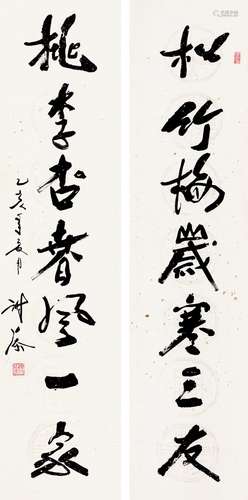 松竹梅歲寒三友
桃李杏春風一家
乙亥年夏月